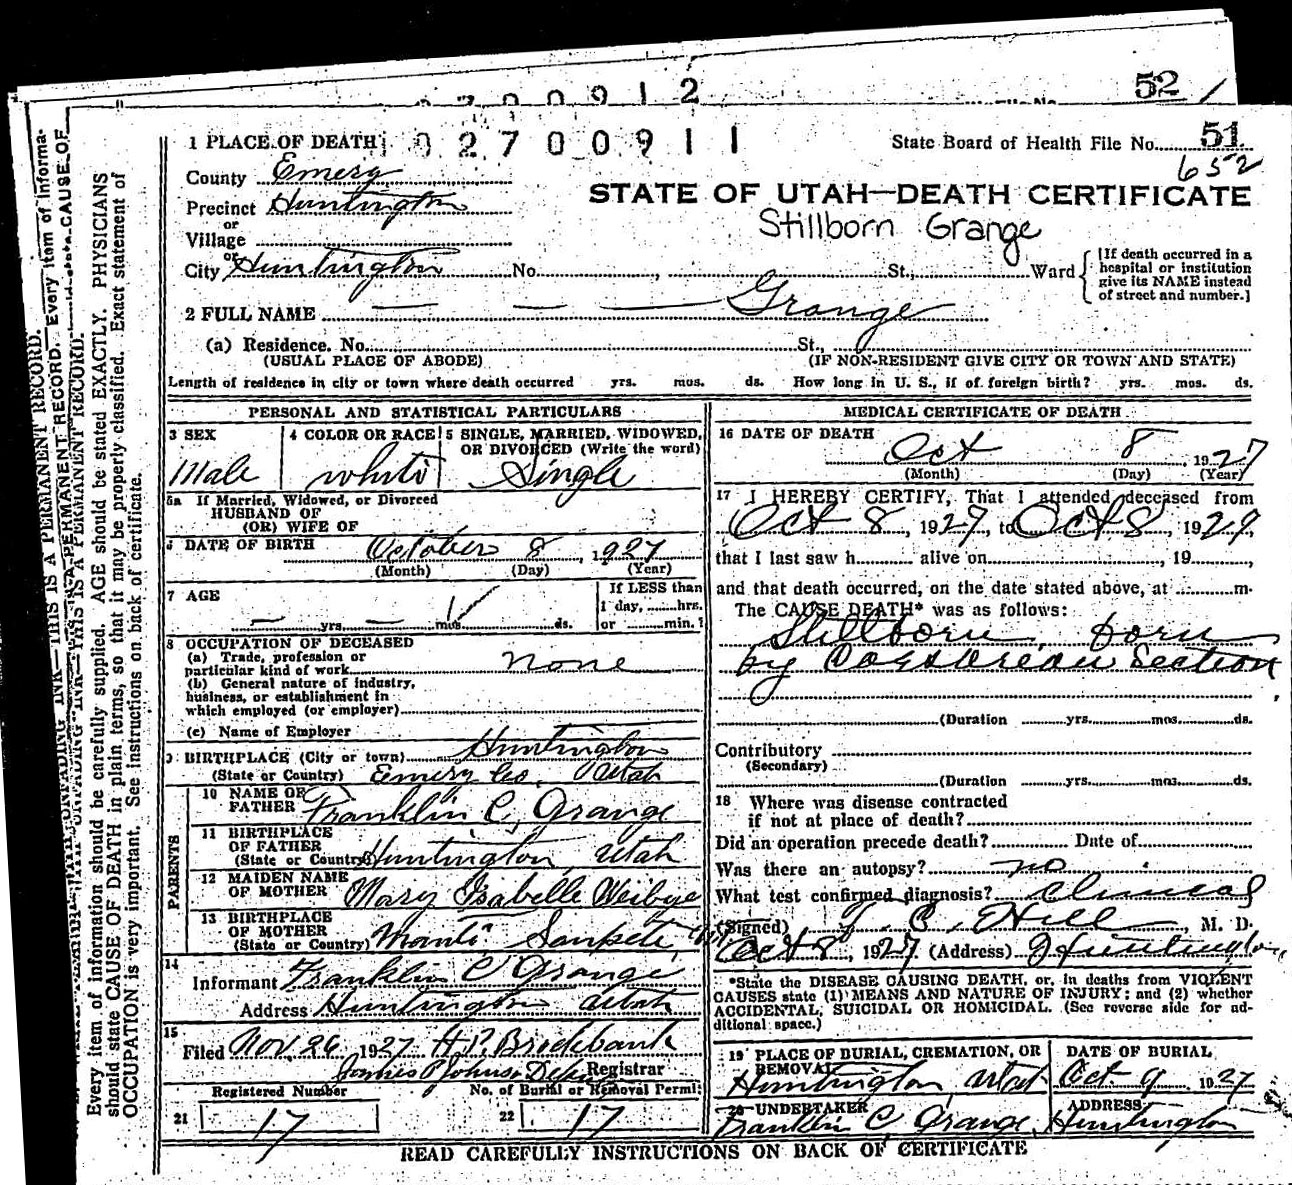 52
2700912
1 PLACE OF DEATH
02700911
State Board of Health File No. 51
652
County Emery
STATE OF UTAH—DEATH CERTIFICATE
Precinct Huntington
Stillborn Grange
or
Village
or
City Huntington No. , St., Ward
[If death occurred in a
hospital or institution
give its NAME instead
of street and number.]
2 FULL NAME — — — Grange
(a) Residence. No. St.,
(USUAL PLACE OF ABODE) (IF NON-RESIDENT GIVE CITY OR TOWN AND STATE)
Length of residence in city or town where death occurred yrs. mos. ds. How long in U. S., if of foreign birth? yrs. mos. ds.
PERSONAL AND STATISTICAL PARTICULARS
3 SEX
Male
4 COLOR OR RACE
White
5 SINGLE, MARRIED, WIDOWED,
OR DIVORCED (Write the word)
Single
5a If Married, Widowed, or Divorced
HUSBAND OF
(OR) WIFE OF
6 DATE OF BIRTH October 8 1927
(Month) (Day) (Year)
7 AGE
— yrs. — mos. ds.
If LESS than
1 day, hrs.
or min.?
8 OCCUPATION OF DECEASED
(a) Trade, profession or
particular kind of work none
(b) General nature of industry,
business, or establishment in
which employed (or employer)
(c) Name of Employer
9 BIRTHPLACE (City or town) Huntington
(State or Country) Emery Co. Utah
PARENTS
10 NAME OF
FATHER Franklin C. Grange
11 BIRTHPLACE
OF FATHER
(State or Country) Huntington Utah
12 MAIDEN NAME
OF MOTHER Mary Isabelle Weibye
13 BIRTHPLACE
OF MOTHER
(State or Country) Manti Sanpete
14
Informant Franklin C Grange
Address Huntington Utah
15
Filed Nov. 26 1927 H. P. Brockbank
Registrar
Registered Number
21 17
No. of Burial or Removal Permit
22 17
MEDICAL CERTIFICATE OF DEATH
16 DATE OF DEATH
Oct 8 1927
(Month) (Day) (Year)
17 I HEREBY CERTIFY, That I attended deceased from
Oct 8, 1927, to Oct 8, 1927,
that I last saw h alive on , 19 ,
and that death occurred, on the date stated above, at m.
The CAUSE DEATH* was as follows:
Stillborn, born
by Caesarean Section
(Duration yrs. mos. ds.
Contributory
(Secondary)
(Duration yrs. mos. ds.
18 Where was disease contracted
if not at place of death?
Did an operation precede death? Date of
Was there an autopsy? no
What test confirmed diagnosis? Clinical
(Signed) T. C. Hill, M. D.
Oct 8, 1927 (Address) Huntington
*State the DISEASE CAUSING DEATH, or, in deaths from VIOLENT
CAUSES state (1) MEANS AND NATURE OF INJURY; and (2) whether
ACCIDENTAL, SUICIDAL OR HOMICIDAL. (See reverse side for ad-
ditional space.)
19 PLACE OF BURIAL, CREMATION, OR
REMOVAL
Huntington Utah
DATE OF BURIAL
Oct. 9 1927
20 UNDERTAKER
Franklin C Grange
ADDRESS
Huntington
READ CAREFULLY INSTRUCTIONS ON BACK OF CERTIFICATE
THIS IS A PERMANENT RECORD.
Every item of information should be carefully supplied. AGE should be stated EXACTLY. PHYSICIANS
should state CAUSE OF DEATH in plain terms, so that it may be properly classified. Exact statement of
OCCUPATION is very important. See instructions on back of certificate.